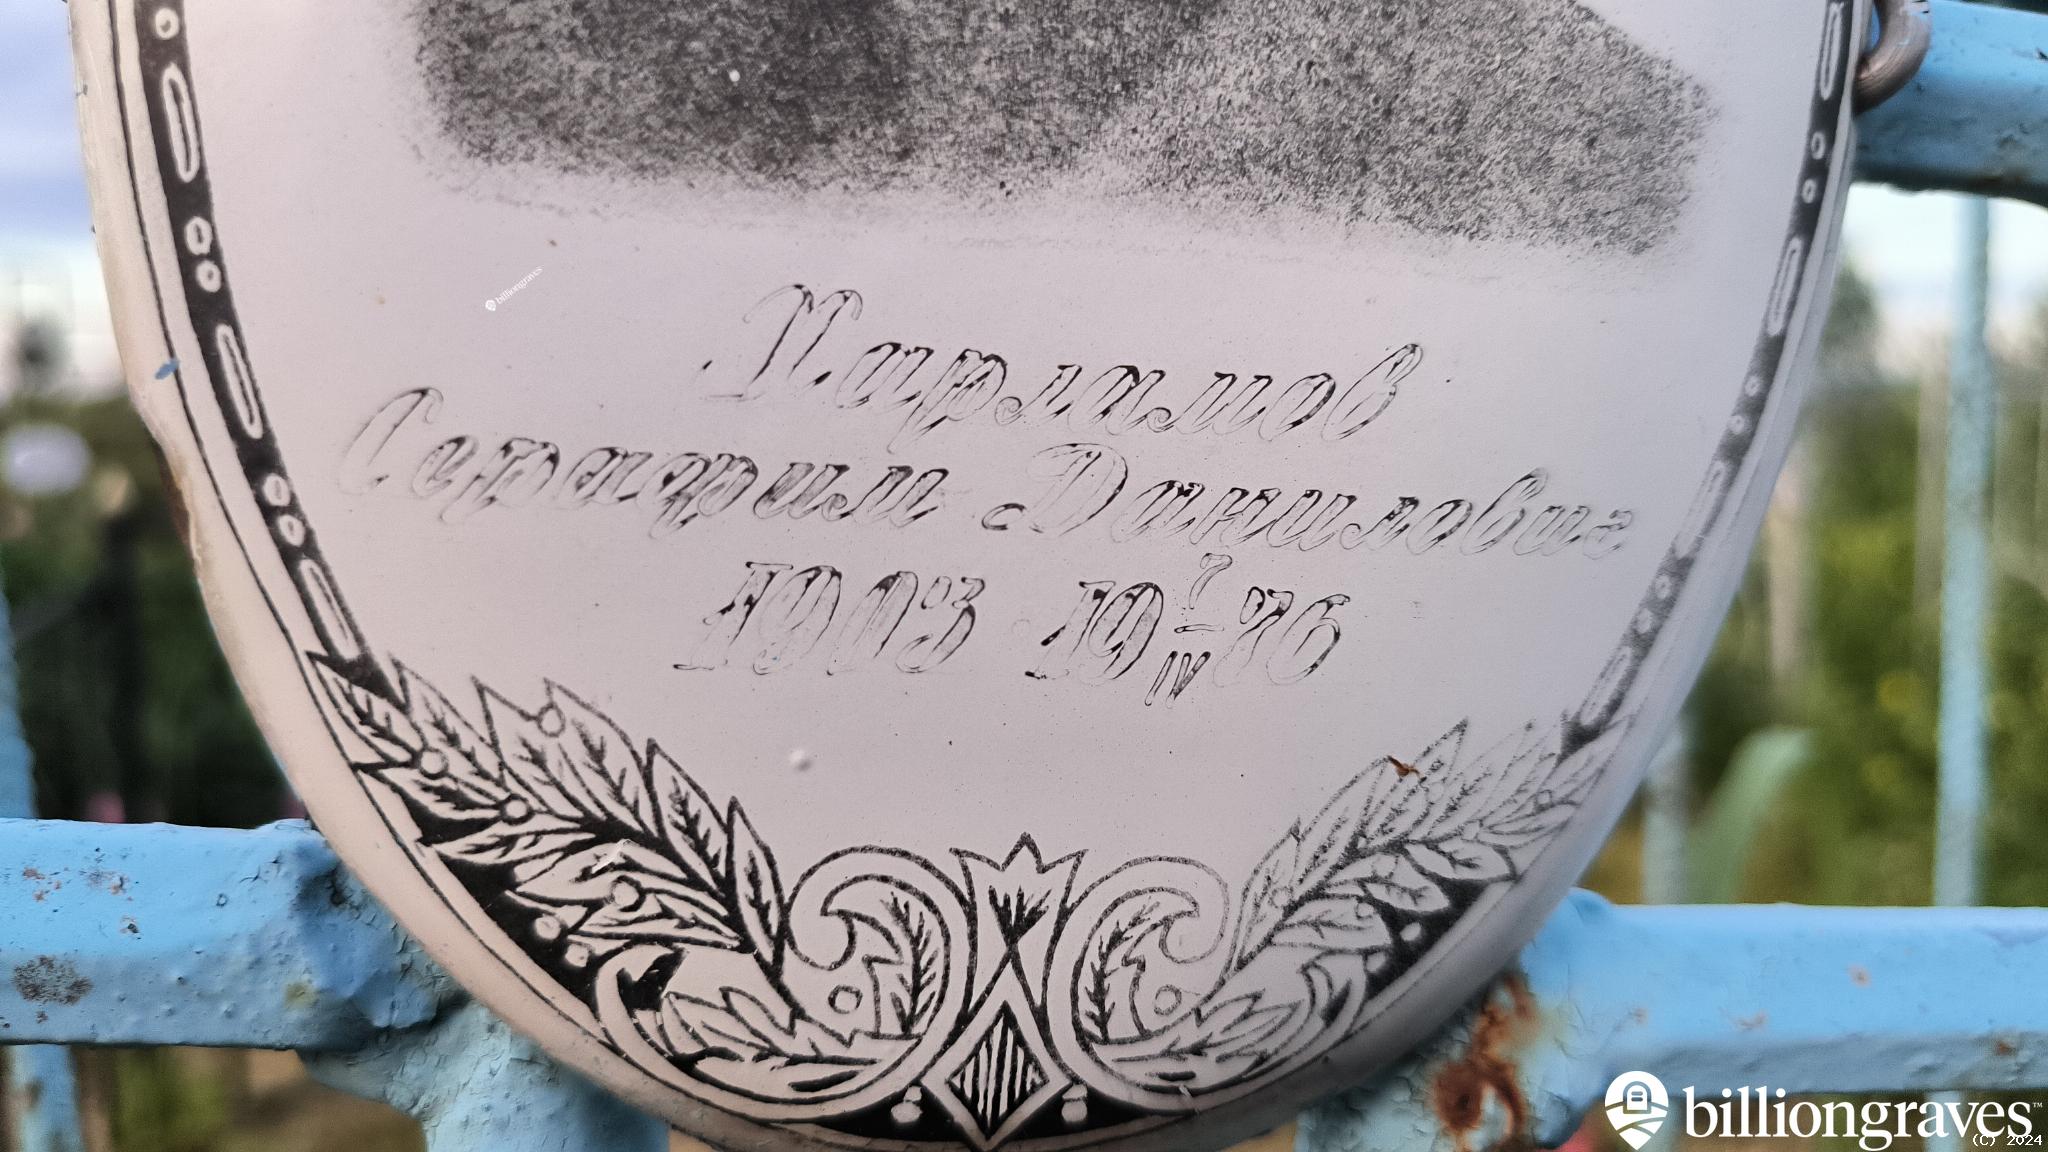 Харламов
Серафим Данилович
1903 19 7/IV 76
billiongraves
billiongraves™
(C) 2024